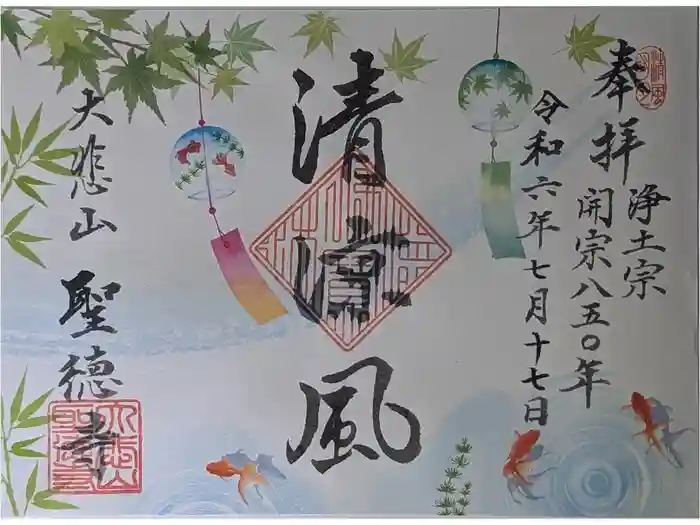 奉拝
浄土宗
開宗八五〇年
令和六年七月十七日
清
風
大悲山
聖徳寺